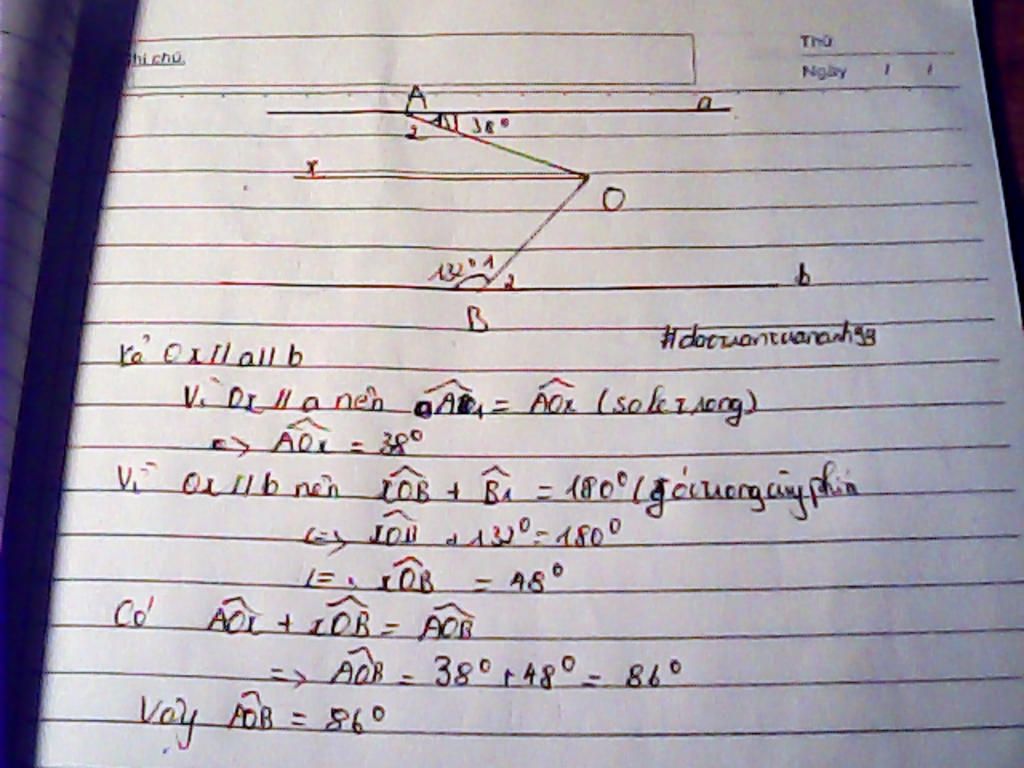 hi chú.
Thứ
Ngày / /
A
a
2
1
38°
x
O
132° 1
2
b
B
#doctuantuananh99
Kẻ Ox // a // b
Vì Ox // a nên = AOx (so le trong)
=> AOx = 38°
Vì Ox // b nên xOB + B1 = 180° (góc trong cùng phía
<=> xOB + 132° = 180°
xOB = 48°
Có AOx + xOB = AOB
=> AOB = 38° + 48° = 86°
Vậy AOB = 86°